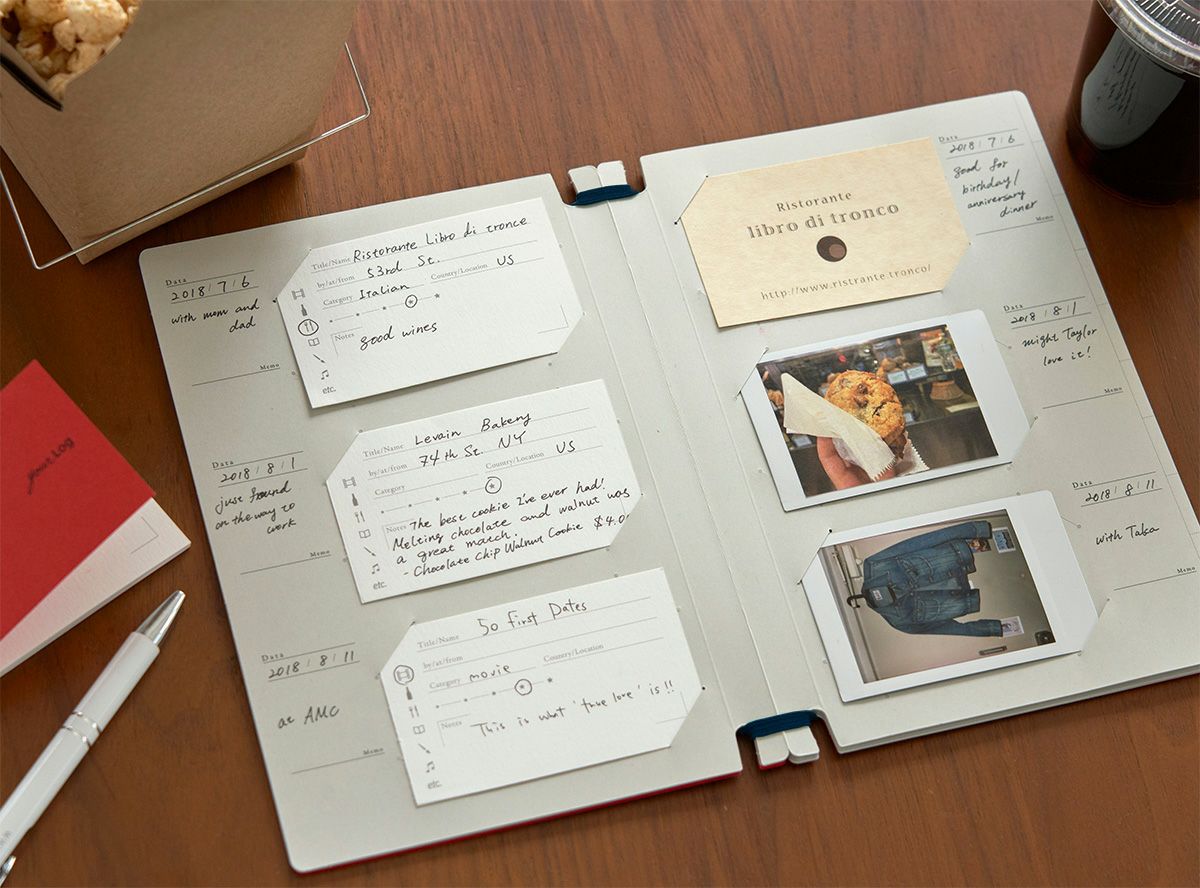 Data
2018 / 7 / 6
with mom and
dad
Memo
Title/Name Ristorante Libro di tronce
by/at/from 53rd St.
Country/Location US
Category Italian
Notes good wines
etc.
Data
2018 / 8 / 1
just found
on the way to
work
Memo
Title/Name Levain Bakery
by/at/from 74th St. NY
Country/Location US
Category
Notes The best cookie I've ever had!
Melting chocolate and walnut was
a great match.
- Chocolate Chip Walnut Cookie $4.0
etc.
Data
2018 / 8 / 11
at AMC
Memo
Title/Name 50 First Dates
by/at/from
Country/Location
Category movie
Notes This is what 'true love' is!!
etc.
Ristorante
libro di tronco
http://www.ristrante.tronco/
Data
2018 / 7 / 6
good for
birthday/
anniversary
dinner
Memo
Data
2018 / 8 / 1
might Taylor
love it!
Memo
Data
2018 / 8 / 11
with Taka
Memo
your Log